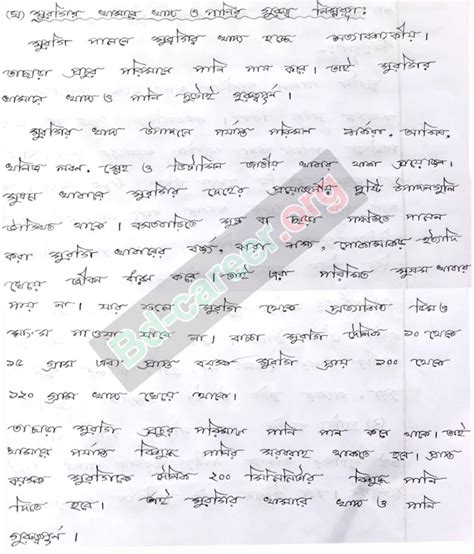 (ঘ) মুরগির খামারে খাদ্য ও পানির গুরুত্ব নিম্নরূপ:
মুরগি পালনে মুরগির খাদ্য হচ্ছে অত্যাবশ্যকীয়।
তাছাড়া প্রচুর পরিমানে পানি পান করে। তাই মুরগির
খামারে খাদ্য ও পানি দুটোই গুরুত্বপূর্ন।
মুরগির খাদ্য উপাদানে পর্যাপ্ত পরিমান শর্করা, আমিষ,
খনিজ লবন, স্নেহ ও ভিটামিন জাতীয় খাবার থাকা প্রয়োজন।
সুষম খাবারে মুরগির দেহের প্রয়োজনীয় পুষ্টি উপাদানগুলি
উপস্থিত থাকে। বসতবাড়িতে মুক্ত বা ছেড়ে পদ্ধতিতে পালন
করা মুরগি খাবারের বর্জ্য, ঝরা শস্য, পোকামাকড় ইত্যাদি
খেয়ে জীবন ধারন করে। তাই এরা পরিমিত সুষম খাবার
পায় না। যার ফলে মুরগি থেকে প্রত্যাশিত ডিম ও
মাংস পাওয়া যায় না। বাচ্চা মুরগি দৈনিক ১০ থেকে
১৫ গ্রাম এবং প্রাপ্ত বয়স্ক মুরগি প্রায় ১০০ থেকে
১২০ গ্রাম খাদ্য খেয়ে থাকে।
তাছাড়া মুরগি প্রচুর পরিমানে পানি পান করে থাকে। তাই
খামারে পর্যাপ্ত বিশুদ্ধ পানির সরবরাহ থাকতে হবে। প্রাপ্ত
বয়স্ক মুরগিকে দৈনিক ২০০ মিলিলিটার বিশুদ্ধ পানি
দিতে হবে। তাই মুরগির খামারে খাদ্য ও পানি
গুরুত্বপূর্ন।
Bd-career.org